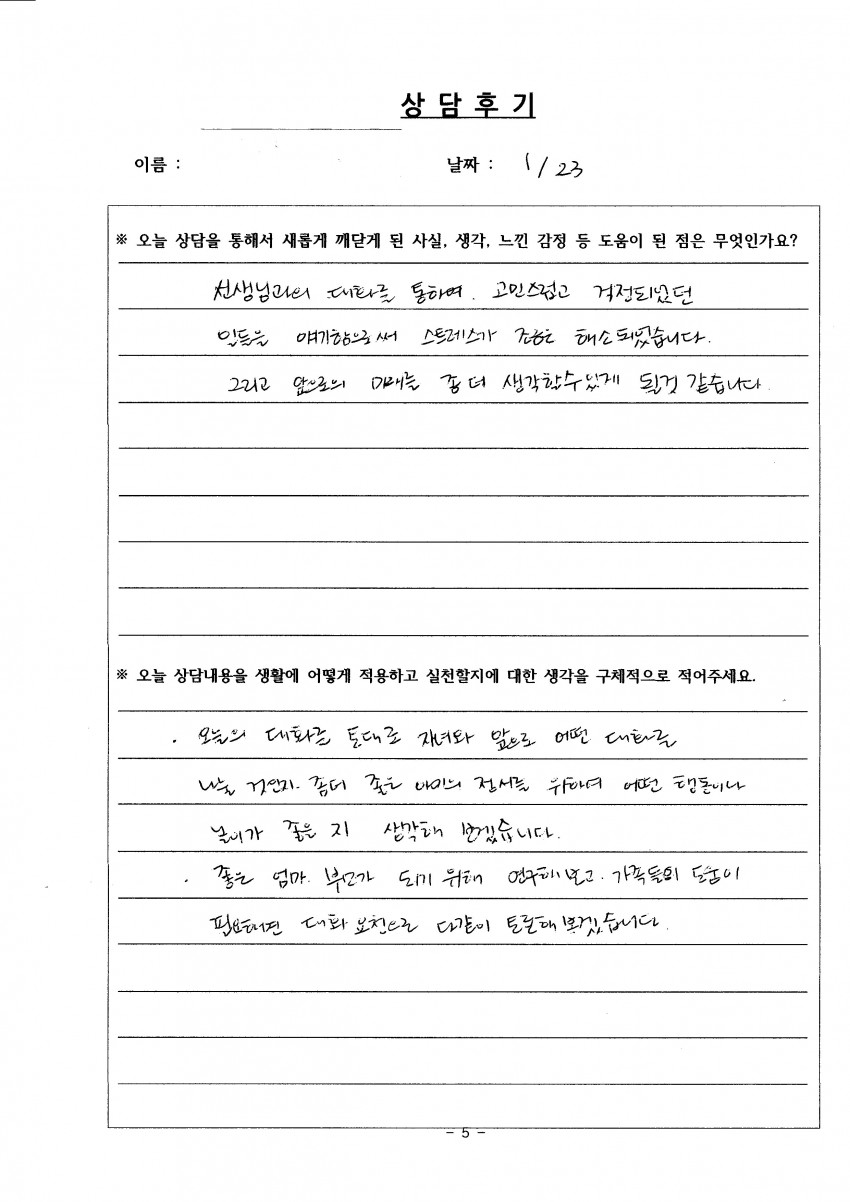 상 담 후 기
이름 :
날짜 : 1/23
※ 오늘 상담을 통해서 새롭게 깨닫게 된 사실, 생각, 느낀 감정 등 도움이 된 점은 무엇인가요?
선생님과의 대화를 통하여. 고민스럽고 걱정되었던
일들을 얘기함으로써 스트레스가 조금은 해소되었습니다.
그리고 앞으로의 미래를 좀 더 생각할수있게 될것 같습니다.
※ 오늘 상담내용을 생활에 어떻게 적용하고 실천할지에 대한 생각을 구체적으로 적어주세요.
. 오늘의 대화를 토대로 자녀와 앞으로 어떤 대화를
나눌 것인지. 좀더 좋은 아이의 정서를 위하여 어떤 행동이나
놀이가 좋을 지 생각해 보겠습니다.
. 좋은 엄마. 부모가 되기 위해 연구해보고. 가족들의 도움이
필요하면 대화 요청으로 다같이 토론해보겠습니다.
- 5 -